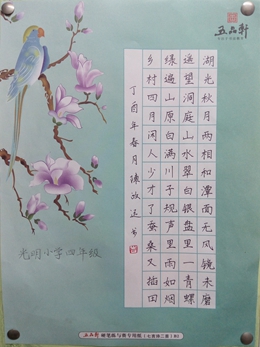 五品轩
湖光秋月两相和潭面无风镜未磨
遥望洞庭山水翠白银盘里一青螺
绿遍山原白满川子规声里雨如烟
乡村四月闲人少才了蚕桑又插田
丁酉年春月
书
光明小学四年级
五品轩 专用纸(七言诗二首)